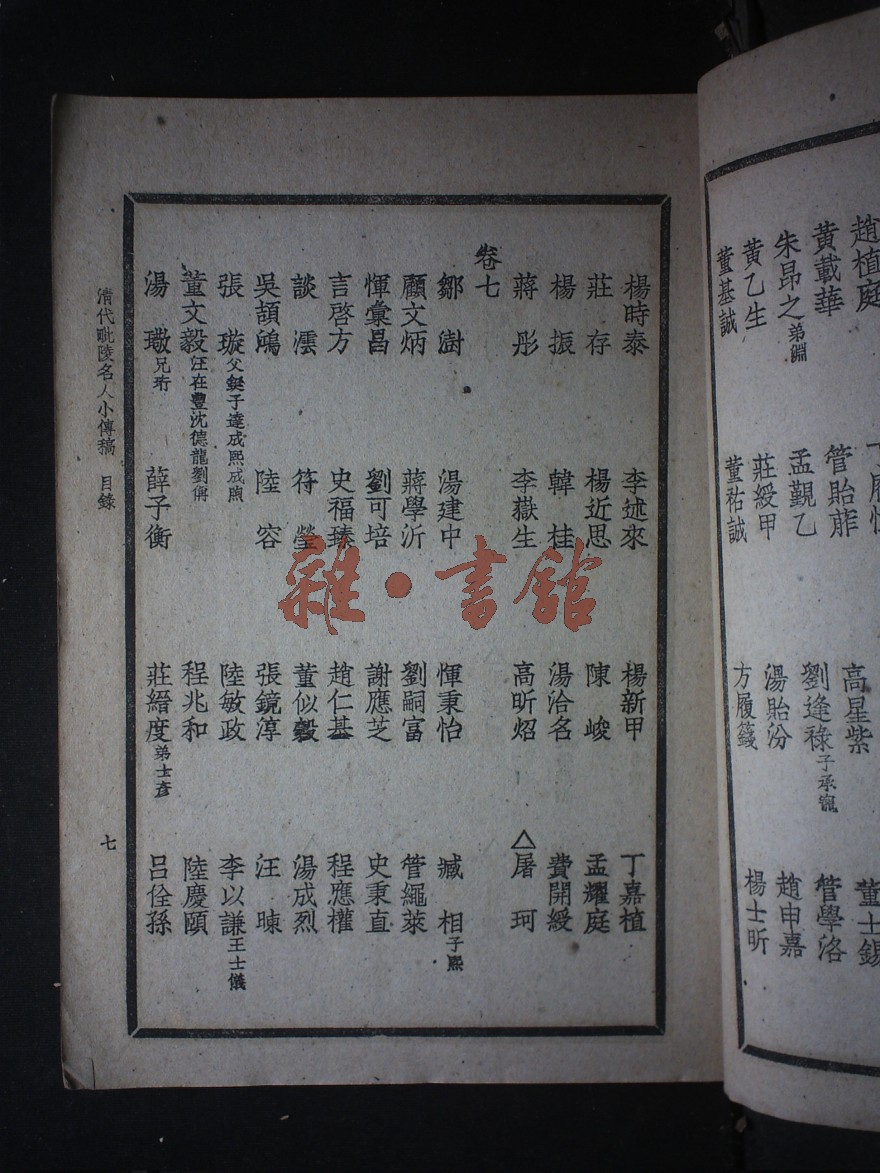 趙植庭
黃載華 管貽葄 高星紫 董士錫
朱昂之弟淵 孟覲乙 劉逢祿子承寵 管學洛
黃乙生 莊綬甲 湯貽汾 趙申嘉
董基誠 董祐誠 方履籛 楊士昕
楊時泰 李述來 楊新甲 丁嘉植
莊存 楊近思 陳峻 孟耀庭
楊振 韓桂 湯洽名 費開綬
蔣彤 李嶽生 高昕炤 △屠珂
卷七
鄒澍 湯建中 惲秉怡 臧相子熙
顧文炳 蔣學沂 劉嗣富 管繩萊
惲彙昌 劉可培 謝應芝 史秉直
言啓方 史福臻 趙仁基 程應權
談澐 符瑩 董似穀 湯成烈
吳頡鴻 陸容 張鏡淳 汪暕
張璇父鋋子達成熙成煦 陸敏政 李以謙王士儀
董文毅汪在豐沈德龍劉儕 程兆和 陸慶頤
湯璥兄珩 薛子衡 莊縉度弟士彥 呂佺孫
清代毗陵名人小傳稿 目錄
七
雜·書館